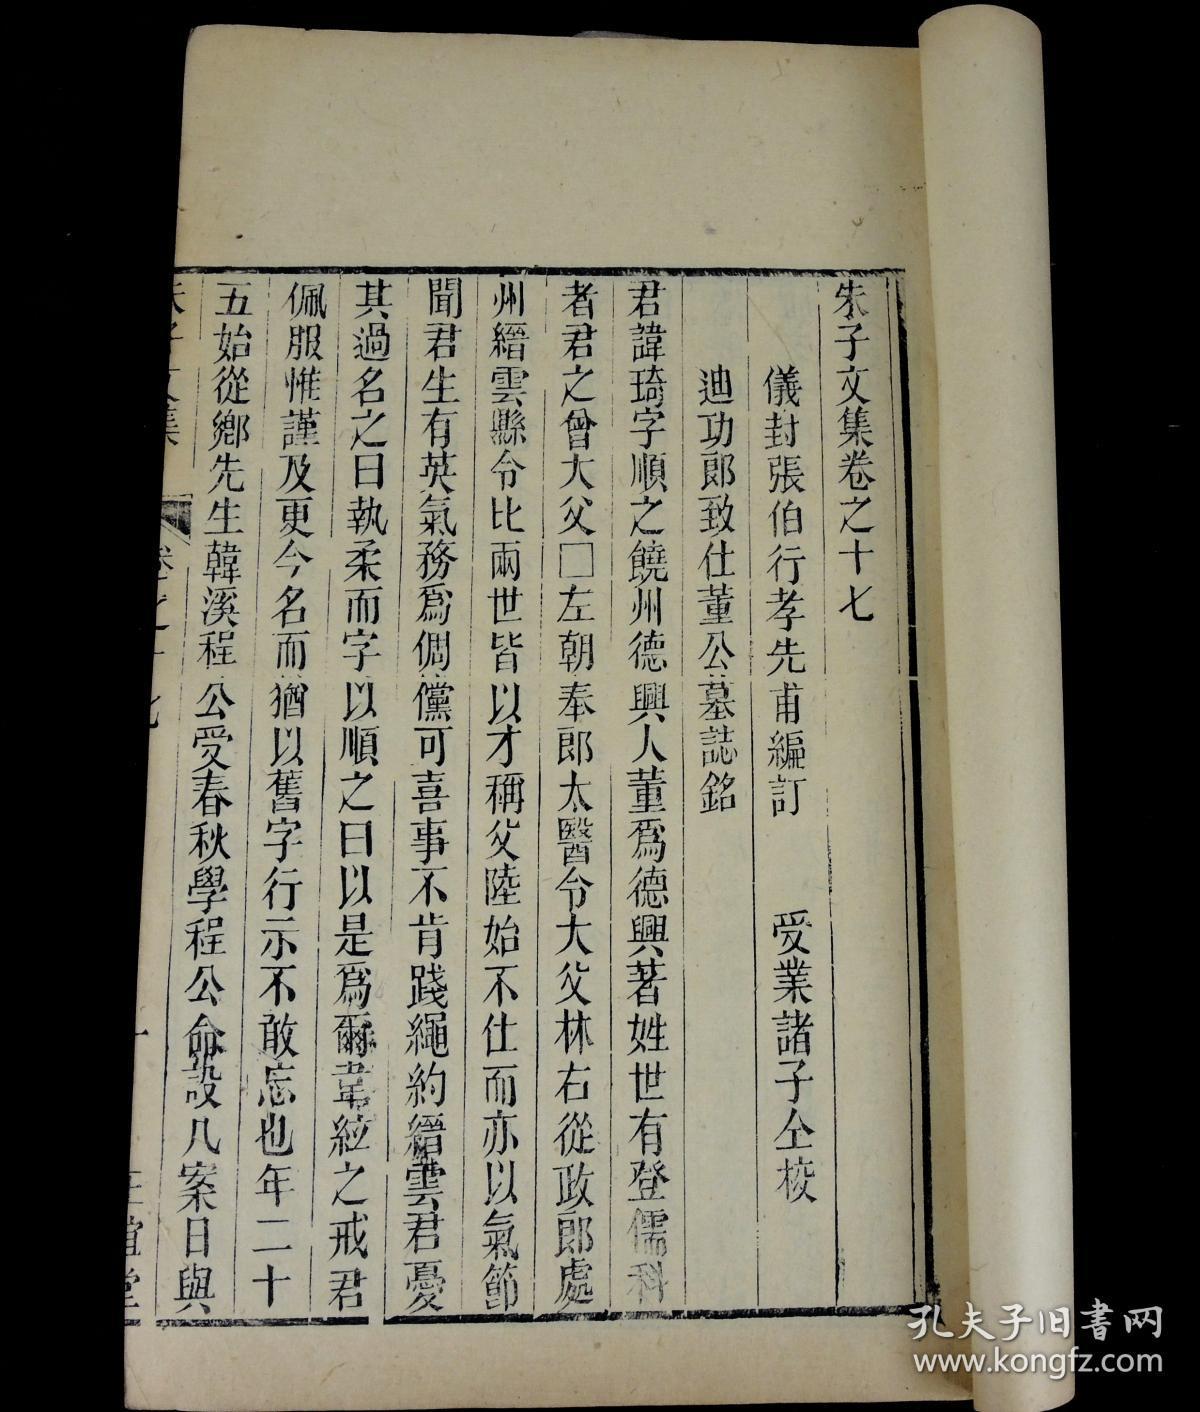 朱子文集卷之十七
儀封張伯行孝先甫編訂　受業諸子仝校
迪功郎致仕董公墓誌銘
君諱琦字順之饒州德興人董爲德興著姓世有登儒科
者君之曾大父□左朝奉郎太醫令大父林右從政郎處
州縉雲縣令比兩世皆以才稱父陸始不仕而亦以氣節
聞君生有英氣務爲倜儻可喜事不肯踐繩約縉雲君憂
其過名之曰執柔而字以順之曰以是爲爾韋絃之戒君
佩服惟謹及更今名而猶以舊字行示不敢忘也年二十
五始從鄉先生韓溪程公受春秋學程公命設几案日與
孔夫子旧书网
www.kongfz.com